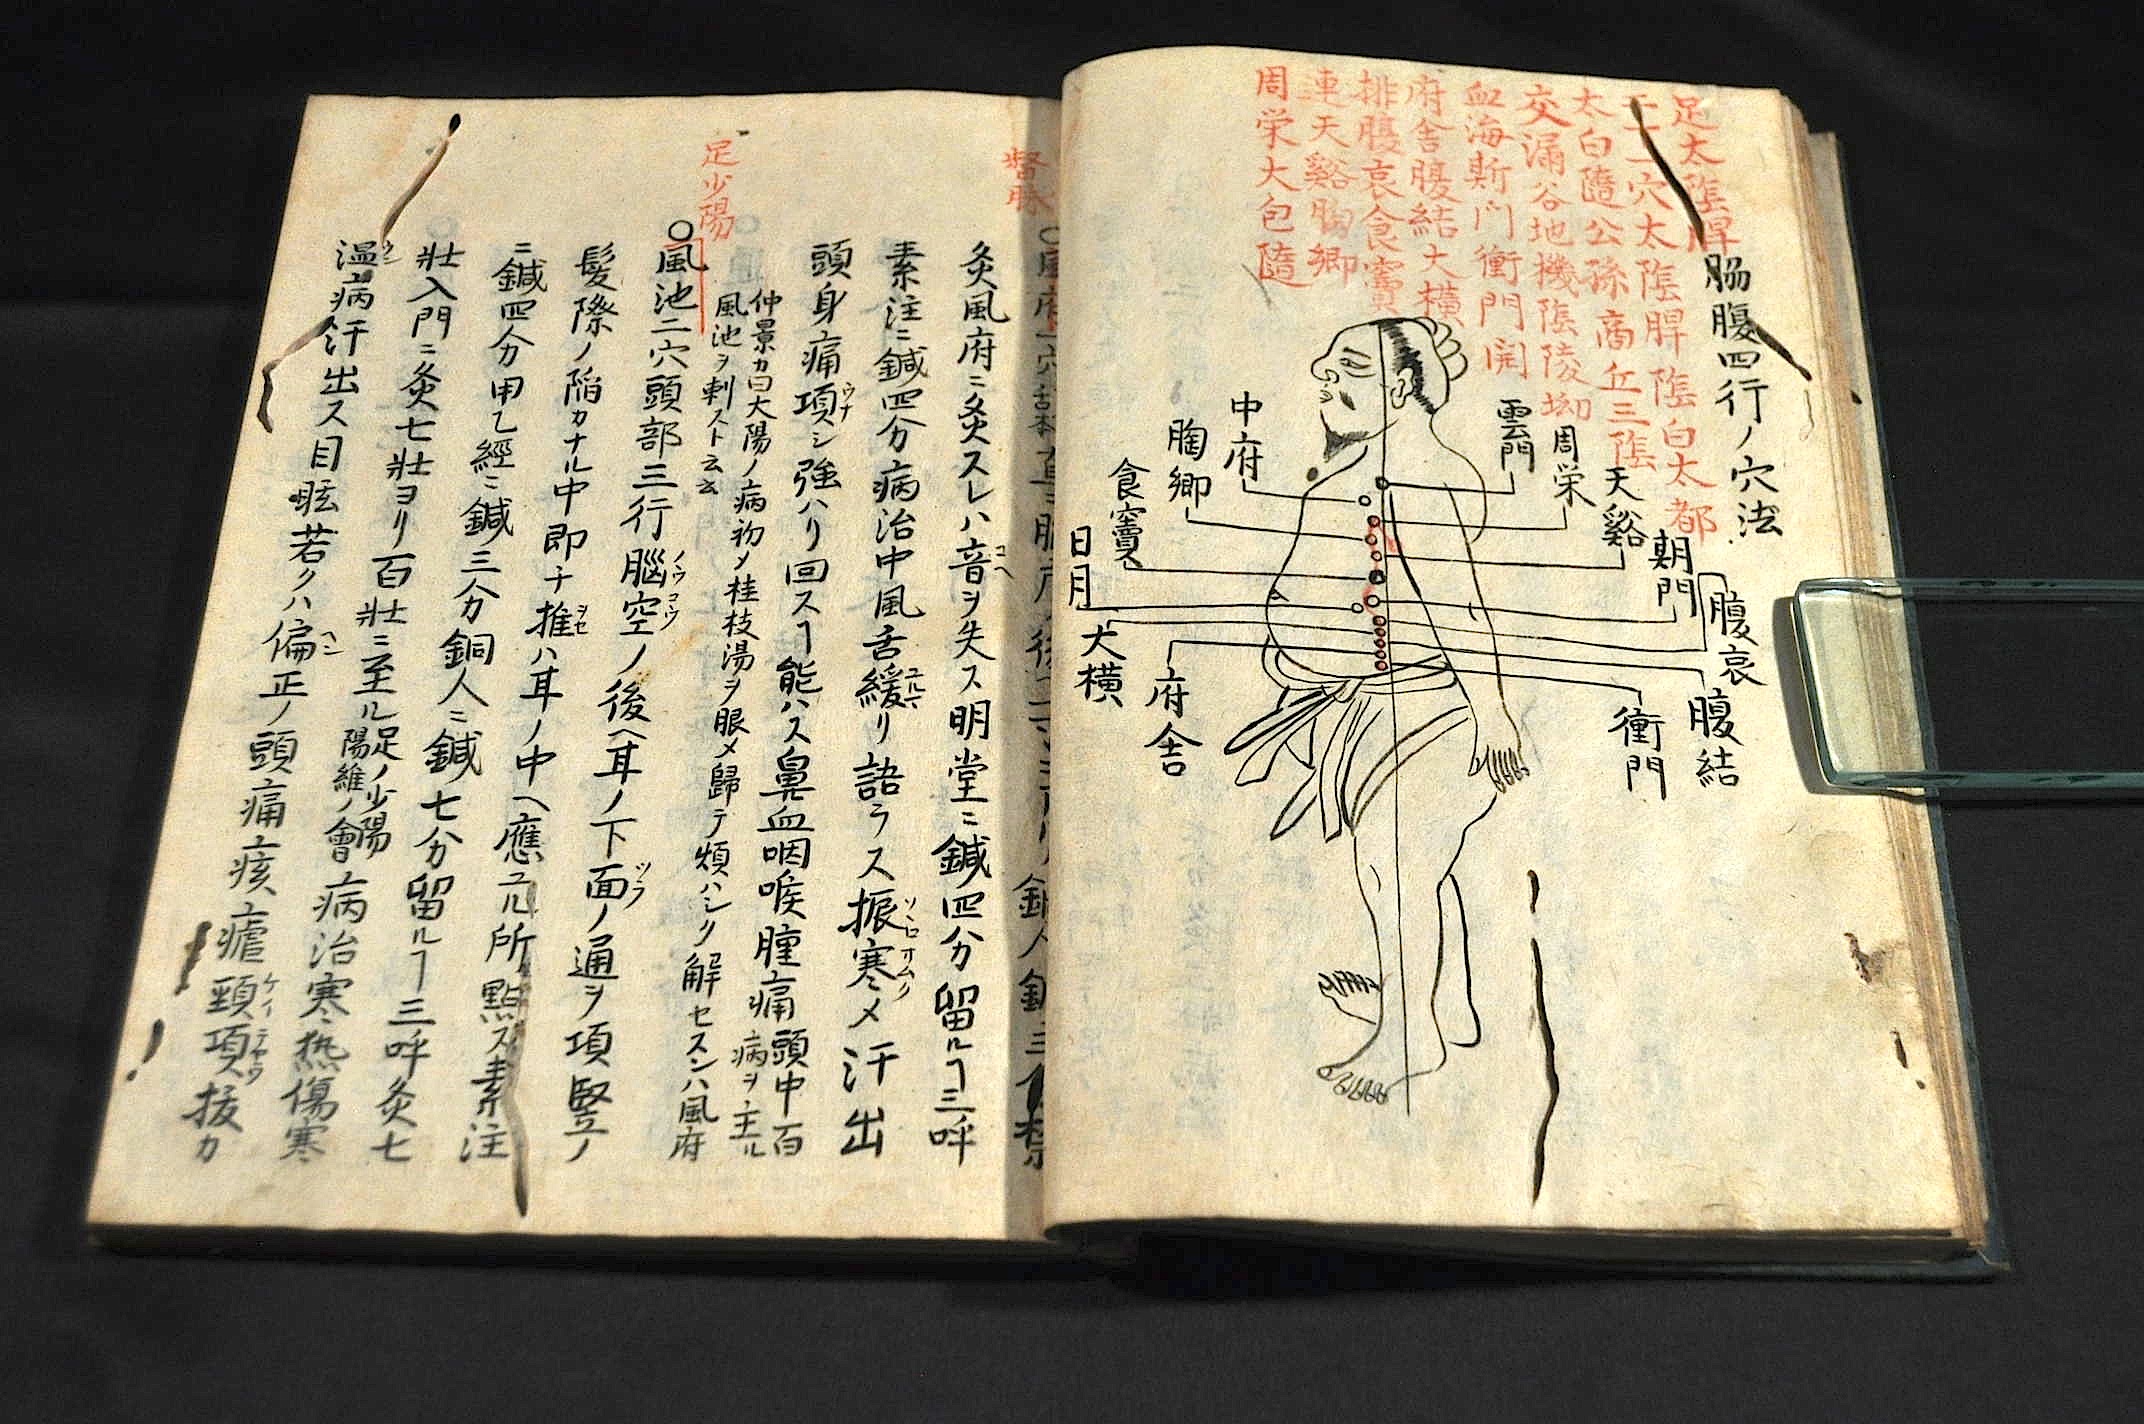 脇腹四行ノ穴法
足太陰脾
十一穴太陰脾陰白太都
太白隨公孫商丘三陰
交漏谷地機陰陵坳
血海斯門衝門開
府舎腹結大横
排腹哀食竇
連天谿胸鄉
周栄大包隨
雲門
周栄
天谿
期門
腹哀
腹結
衝門
中府
胸鄉
食竇
日月
大横
府舎
督脉
灸風府ニ灸スレハ音ヲ失ス明堂ニ鍼四分留ルヿ三呼
素注ニ鍼四分病治中風舌緩リ語ラス振寒メ汗出
頭身痛項シ強ハリ回スヿ能ハス鼻血咽喉腫痛頭中百
病ヲ主ル
仲景カ曰大陽ノ病初メ桂枝湯ヲ服メ歸テ煩ハシク解セスンハ風府
風池ヲ刺スト云云
足少陽
○風池二穴頭部三行腦空ノ後ヘ耳ノ下面ノ通ヲ項竪ノ
髪際ノ陥カナル中即チ推ハ耳ノ中ヘ應ユル所點ス素注
ニ鍼四分甲乙經ニ鍼三分銅人ニ鍼七分留ルヿ三呼灸七
壮入門ニ灸七壮ヨリ百壮ニ至ル足ノ少陽
陽維ノ會病治寒热傷寒
温病汗出ス目眩若クハ偏正ノ頭痛痎瘧頸項抜カ